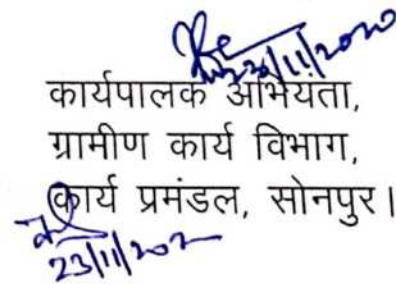 23/11/2020
कार्यपालक अभियंता,
ग्रामीण कार्य विभाग,
कार्य प्रमंडल, सोनपुर।
23/11/202